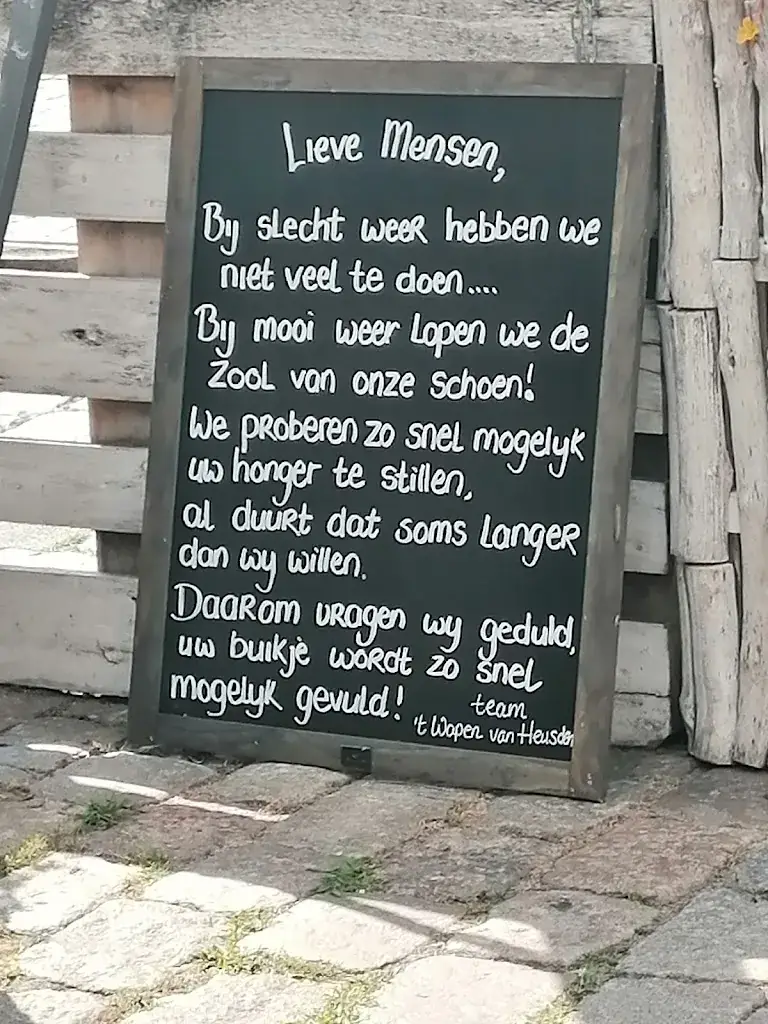 Lieve Mensen,
By slecht weer hebben we
niet veel te doen....
By mooi weer lopen we de
zool van onze schoen!
We proberen zo snel mogelyk
uw honger te stillen,
al duurt dat soms langer
dan wy willen.
Daarom vragen wy geduld,
uw buikje wordt zo snel
mogelyk gevuld!
team
't Wapen van Heusden